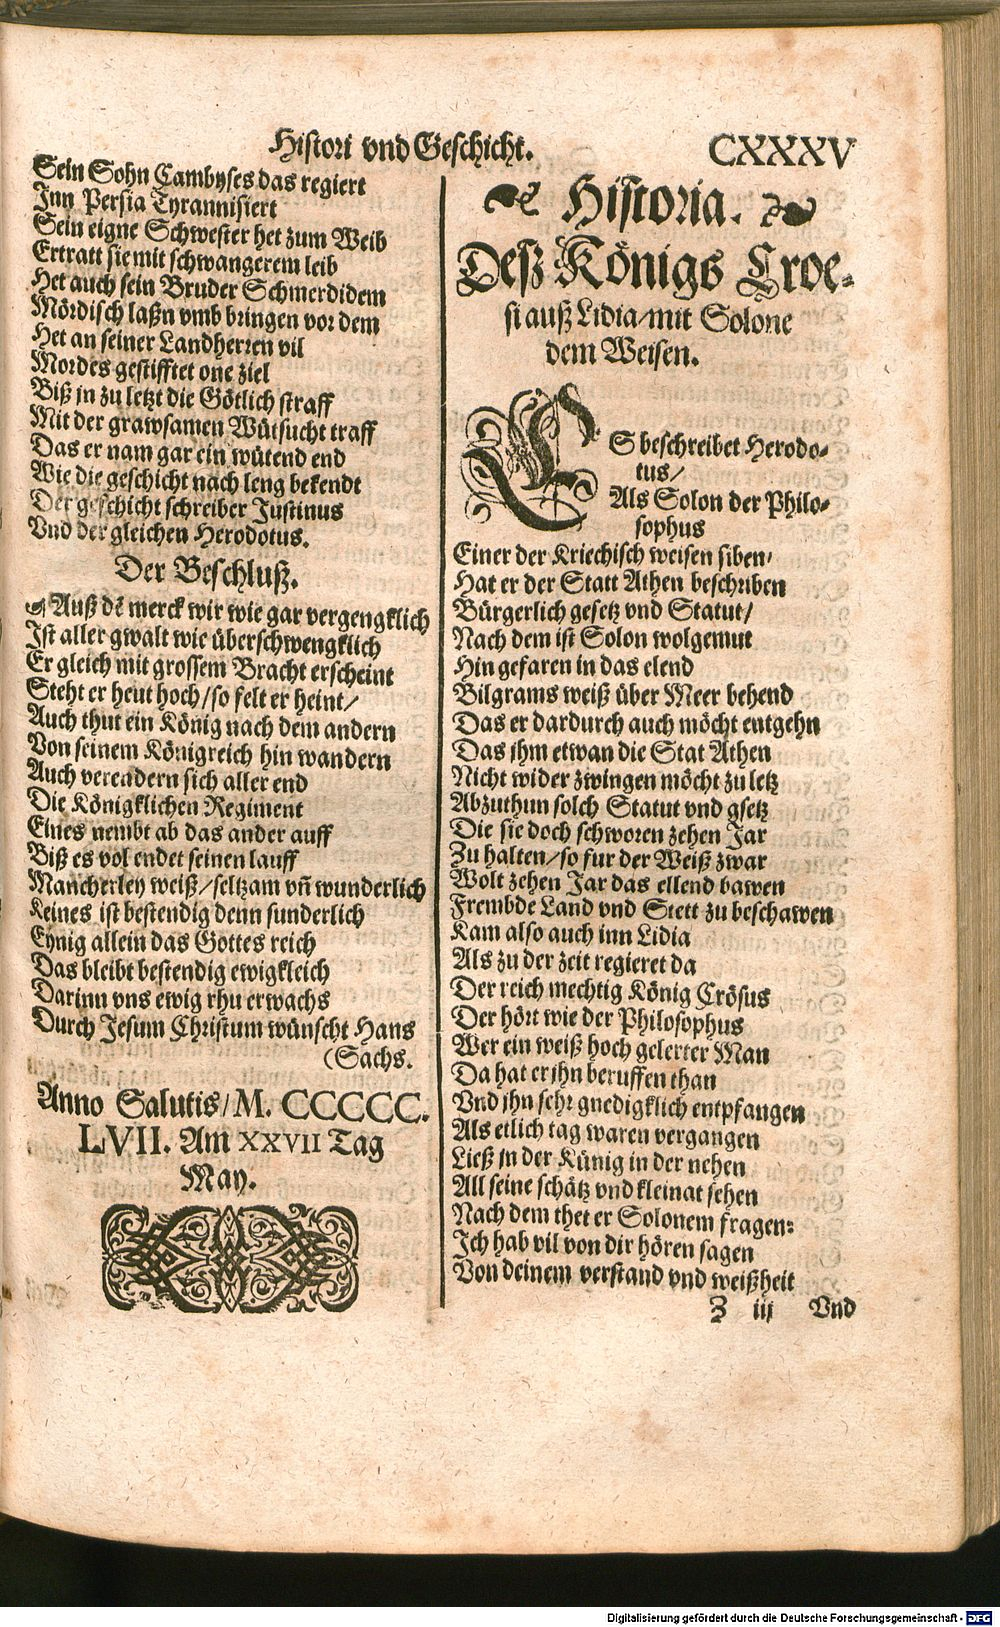 Histori vnd Geschicht. CXXXV
Sein Sohn Cambyses das regiert
Inn Persia Tyrannisiert
Sein eigne Schwester het zum Weib
Ertratt sie mit schwangerem leib
Het auch sein Bruder Schmerdidem
Mördisch laßn vmb bringen vor dem
Het an seiner Landherren vil
Mordes gestifftet one ziel
Biß jn zu letzt die Götlich straff
Mit der grawsamen Wütsucht traff
Das er nam gar ein wütend end
Wie die geschicht nach leng bekendt
Der geschicht schreiber Justinus
Vnd der gleichen Herodotus.
Der Beschluß.
Auß dē merck wir wie gar vergengklich
Ist aller gwalt wie überschwengklich
Er gleich mit grossem Bracht erscheint
Steht er heut hoch/so felt er heint/
Auch thut ein König nach dem andern
Von seinem Königreich hin wandern
Auch verendern sich aller end
Die Königklichen Regiment
Eines nembt ab das ander auff
Biß es vol endet seinen lauff
Mancherley weiß/seltzam vn̄ wunderlich
Keines ist bestendig denn sunderlich
Eynig allein das Gottes reich
Das bleibt bestendig ewigkleich
Darinn vns ewig rhu erwachs
Durch Jesum Christum wünscht Hans
(Sachs.
Anno Salutis/M. CCCCC.
LVII. Am XXVII Tag
May.
Historia.
Deß Königs Croe-
si auß Lidia/mit Solone
dem Weisen.
ES beschreibet Herodo-
tus/
Als Solon der Philo-
sophus
Einer der Kriechisch weisen siben/
Hat er der Statt Athen beschriben
Bürgerlich gesetz vnd Statut/
Nach dem ist Solon wolgemut
Hin gefaren in das elend
Bilgrams weiß über Meer behend
Das er dardurch auch möcht entgehn
Das jhm etwan die Stat Athen
Nicht wider zwingen möcht zu letz
Abzuthun solch Statut vnd gsetz
Die sie doch schworen zehen Jar
Zu halten/so fur der Weiß zwar
Wolt zehen Jar das ellend bawen
Frembde Land vnd Stett zu beschawen
Kam also auch inn Lidia
Als zu der zeit regieret da
Der reich mechtig König Crösus
Der hört wie der Philosophus
Wer ein weiß hoch gelerter Man
Da hat er jhn beruffen than
Vnd jhn sehr gnedigklich entpfangen
Als etlich tag waren vergangen
Ließ jn der Künig in der nehen
All seine schätz vnd kleinat sehen
Nach dem thet er Solonem fragen:
Ich hab vil von dir hören sagen
Von deinem verstand vnd weißheit
Z iij Vnd
Digitalisierung gefördert durch die Deutsche Forschungsgemeinschaft - DFG